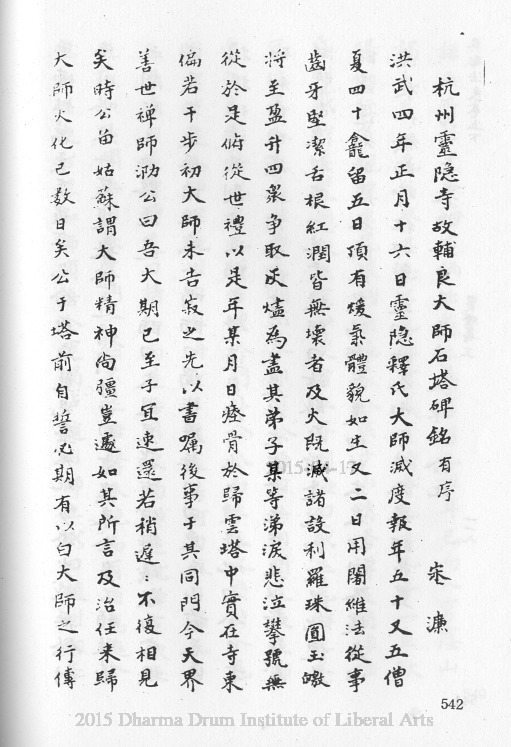 杭州靈隐寺故輔良大師石塔碑銘有序　宋濂
洪武四年正月十六日靈隐釋氏大師滅度報年五十又五僧
夏四十龕留五日頂有煖氣體貌如生又二日用闍維法從事
齒牙堅潔舌根紅潤皆無壞者及火既滅諸設利羅珠圓玉皦
將至盈升四衆争取灰燼為盡其弟子某等涕淚悲泣攀號無
從於是俯從世禮以是年某月日瘞骨於歸雲塔中實在寺東
偏若干步初大師未告寂之先以書嘱後事于其同門今天界
善世禅師泐公曰吾大期已至子冝速還若稍遲:不復相見
矣時公留姑蘇謂大師精神尚彊豈遽如其所言及治任来歸
大師火化已数日矣公于塔前自誓必期有以白大師之行傳
542
2015 Dharma Drum Institute of Liberal Arts